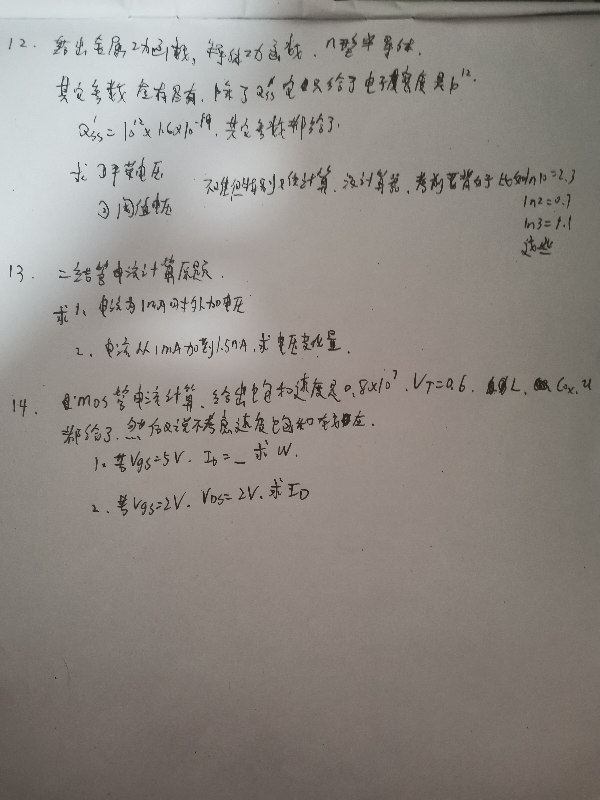 12. 给出金属功函数, 半导体功函数, n型半导体.
其它参数全有具有, 除了Q'ss 电 只给了电子度密度是10¹².
Q'ss=10¹²×1.6×10⁻¹⁹. 其它参数都给了.
求 ①平带电压
不难但特别 计算, 没计算器, 考前要背 ln10=2.3
②阈值电压
ln2=0.7
ln3=1.1
这些
13. 二结管电流计算原题.
求 1. 电流为1mA时外加电压
2. 电流从1mA加到1.5mA, 求电压变化量.
14. MOS管电流计算, 给出饱和速度是0.8×10⁷. VT=0.6. L, Cox, u
都给了, 然后又说不考虑速度饱和效应.
1. 若Vgs=5V. ID=_ 求W.
2. 若Vgs=2V. VDS=2V. 求ID